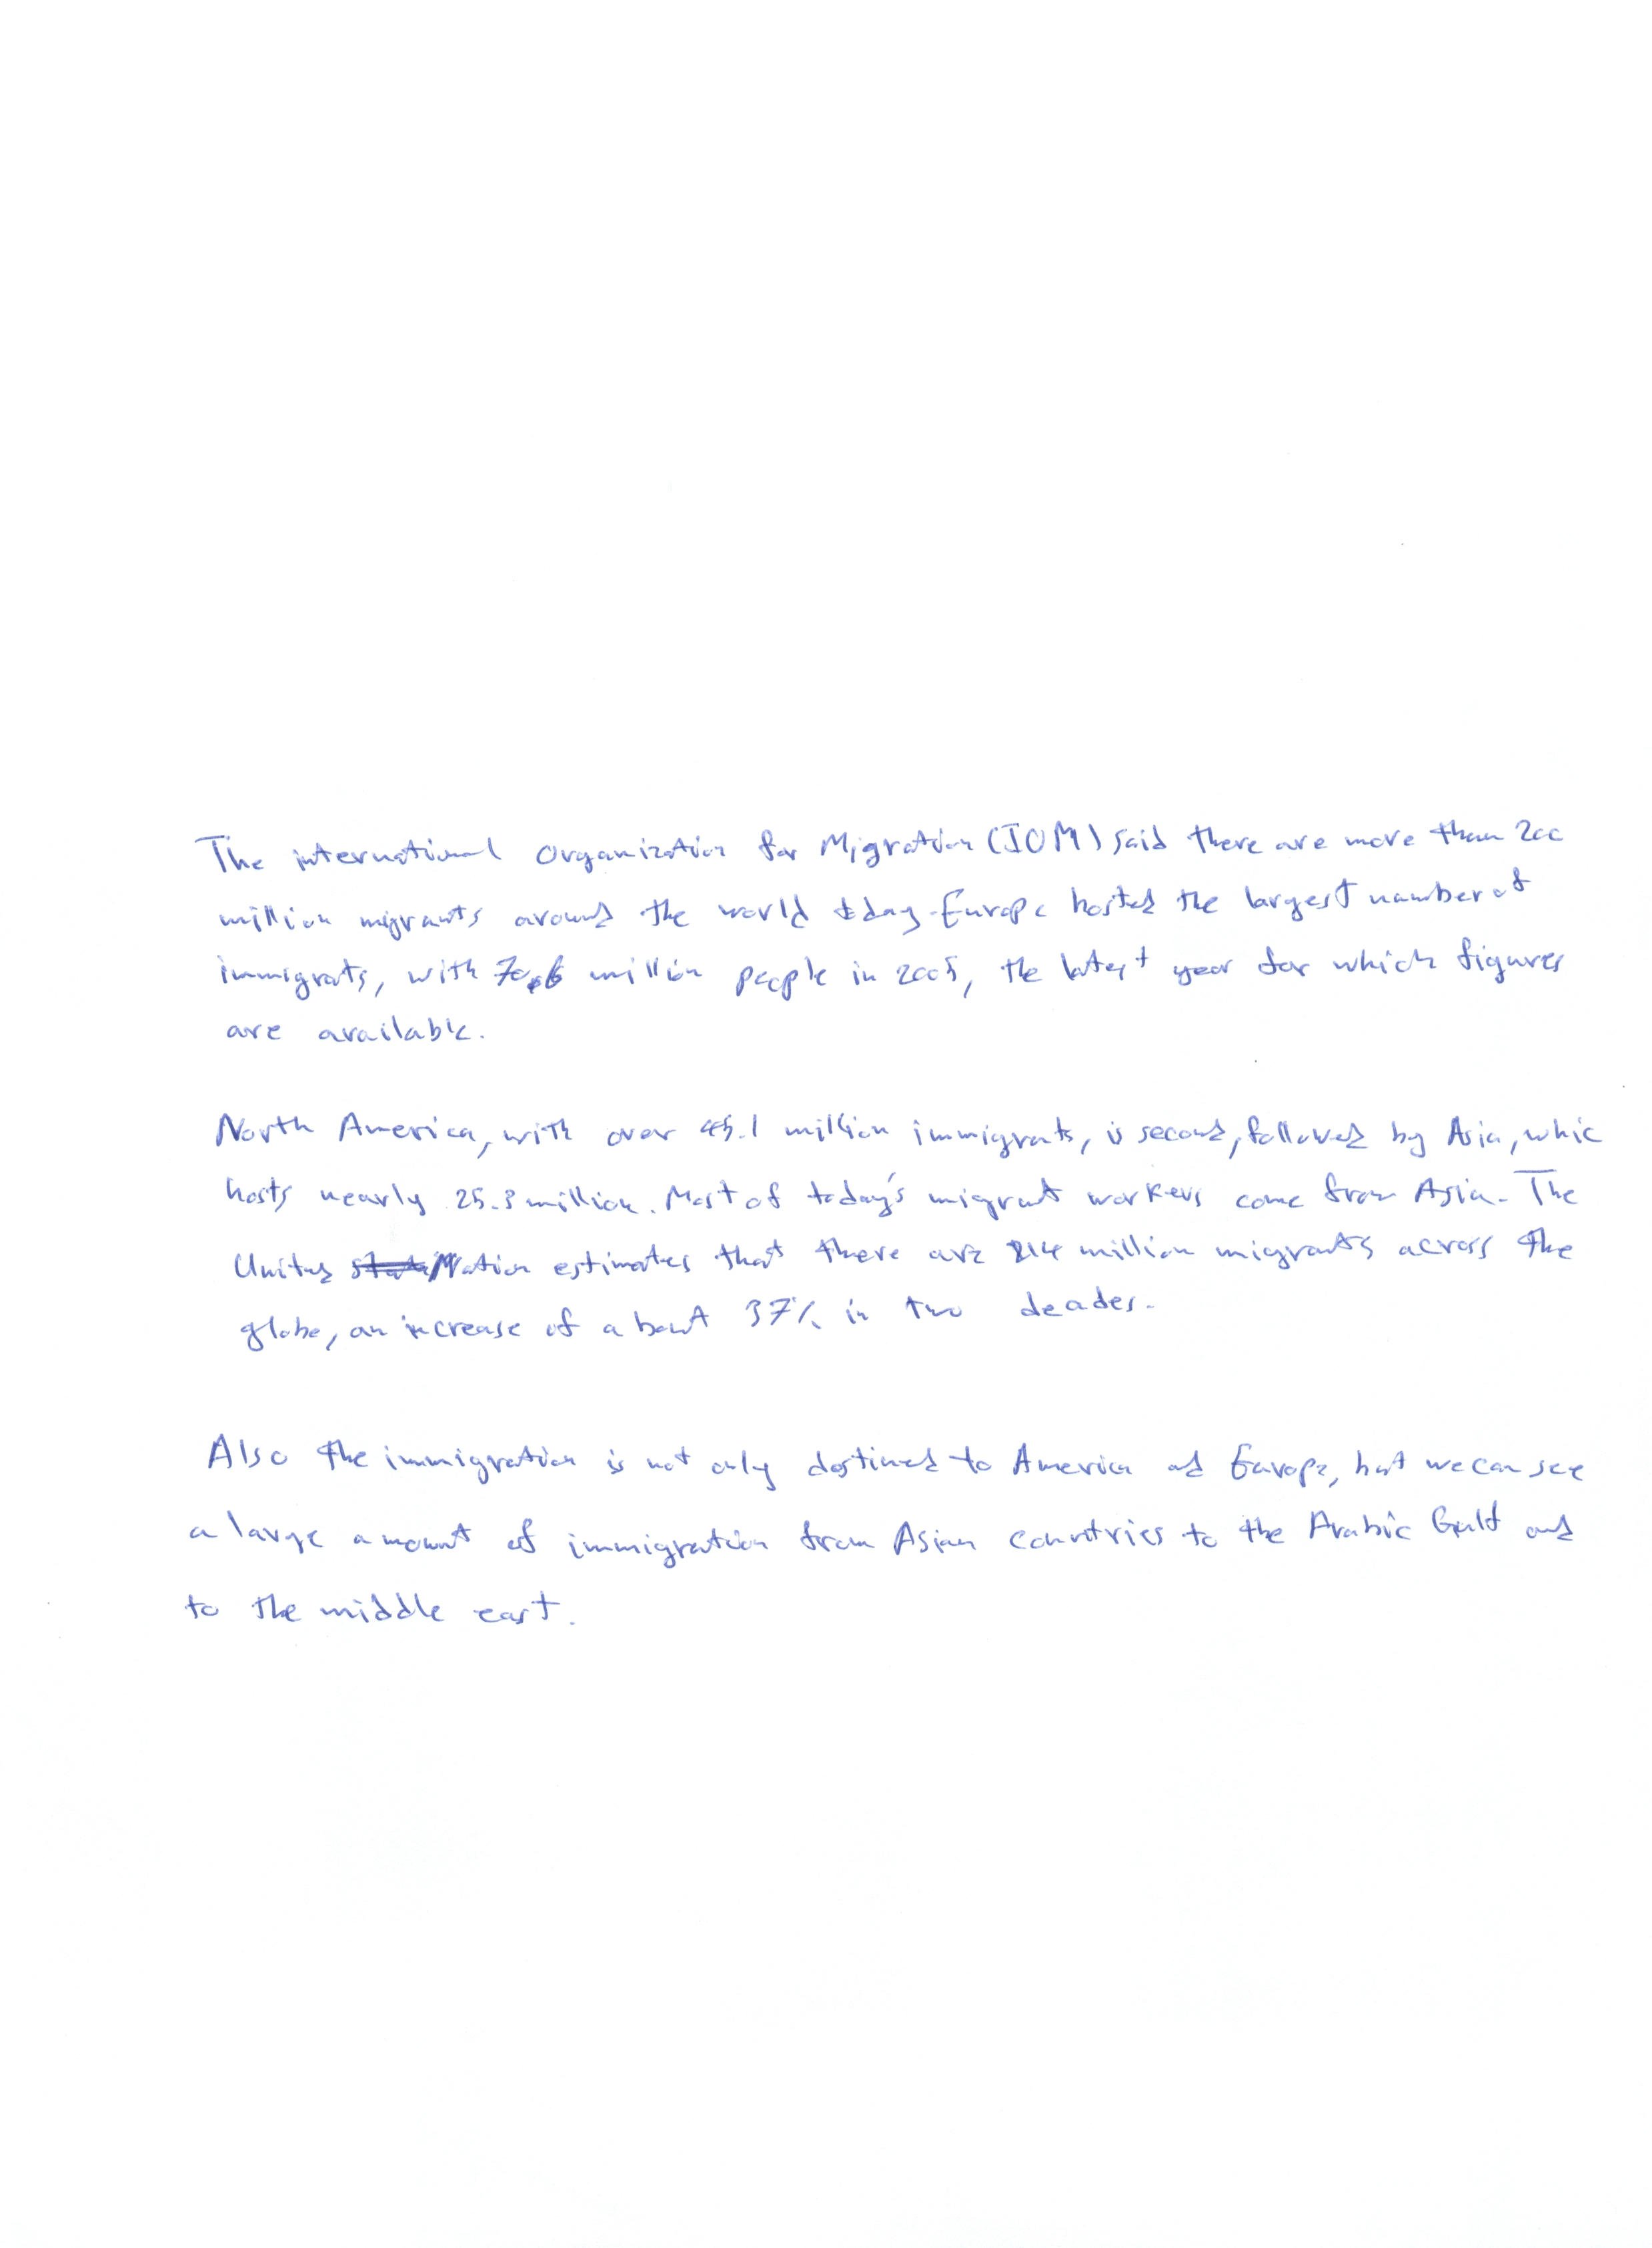 The international Organization for Migration (IOM) said there are more than 200
million migrants around the world today. Europe hosted the largest number of
immigrats, with 70.6 million people in 2005, the latest year for which figures
are available.
North America, with over 45.1 million immigrants, is second, followed by Asia, whic
hosts nearly 25.3 million. Most of today's migrant workers come from Asia. The
United Nation estimates that there are 214 million migrants across the
globe, an increase of about 37% in two deades.
Also the immigration is not only destined to America and Europe, but we can see
a large amount of immigration from Asian countries to the Arabic Gulf and
to the middle east.